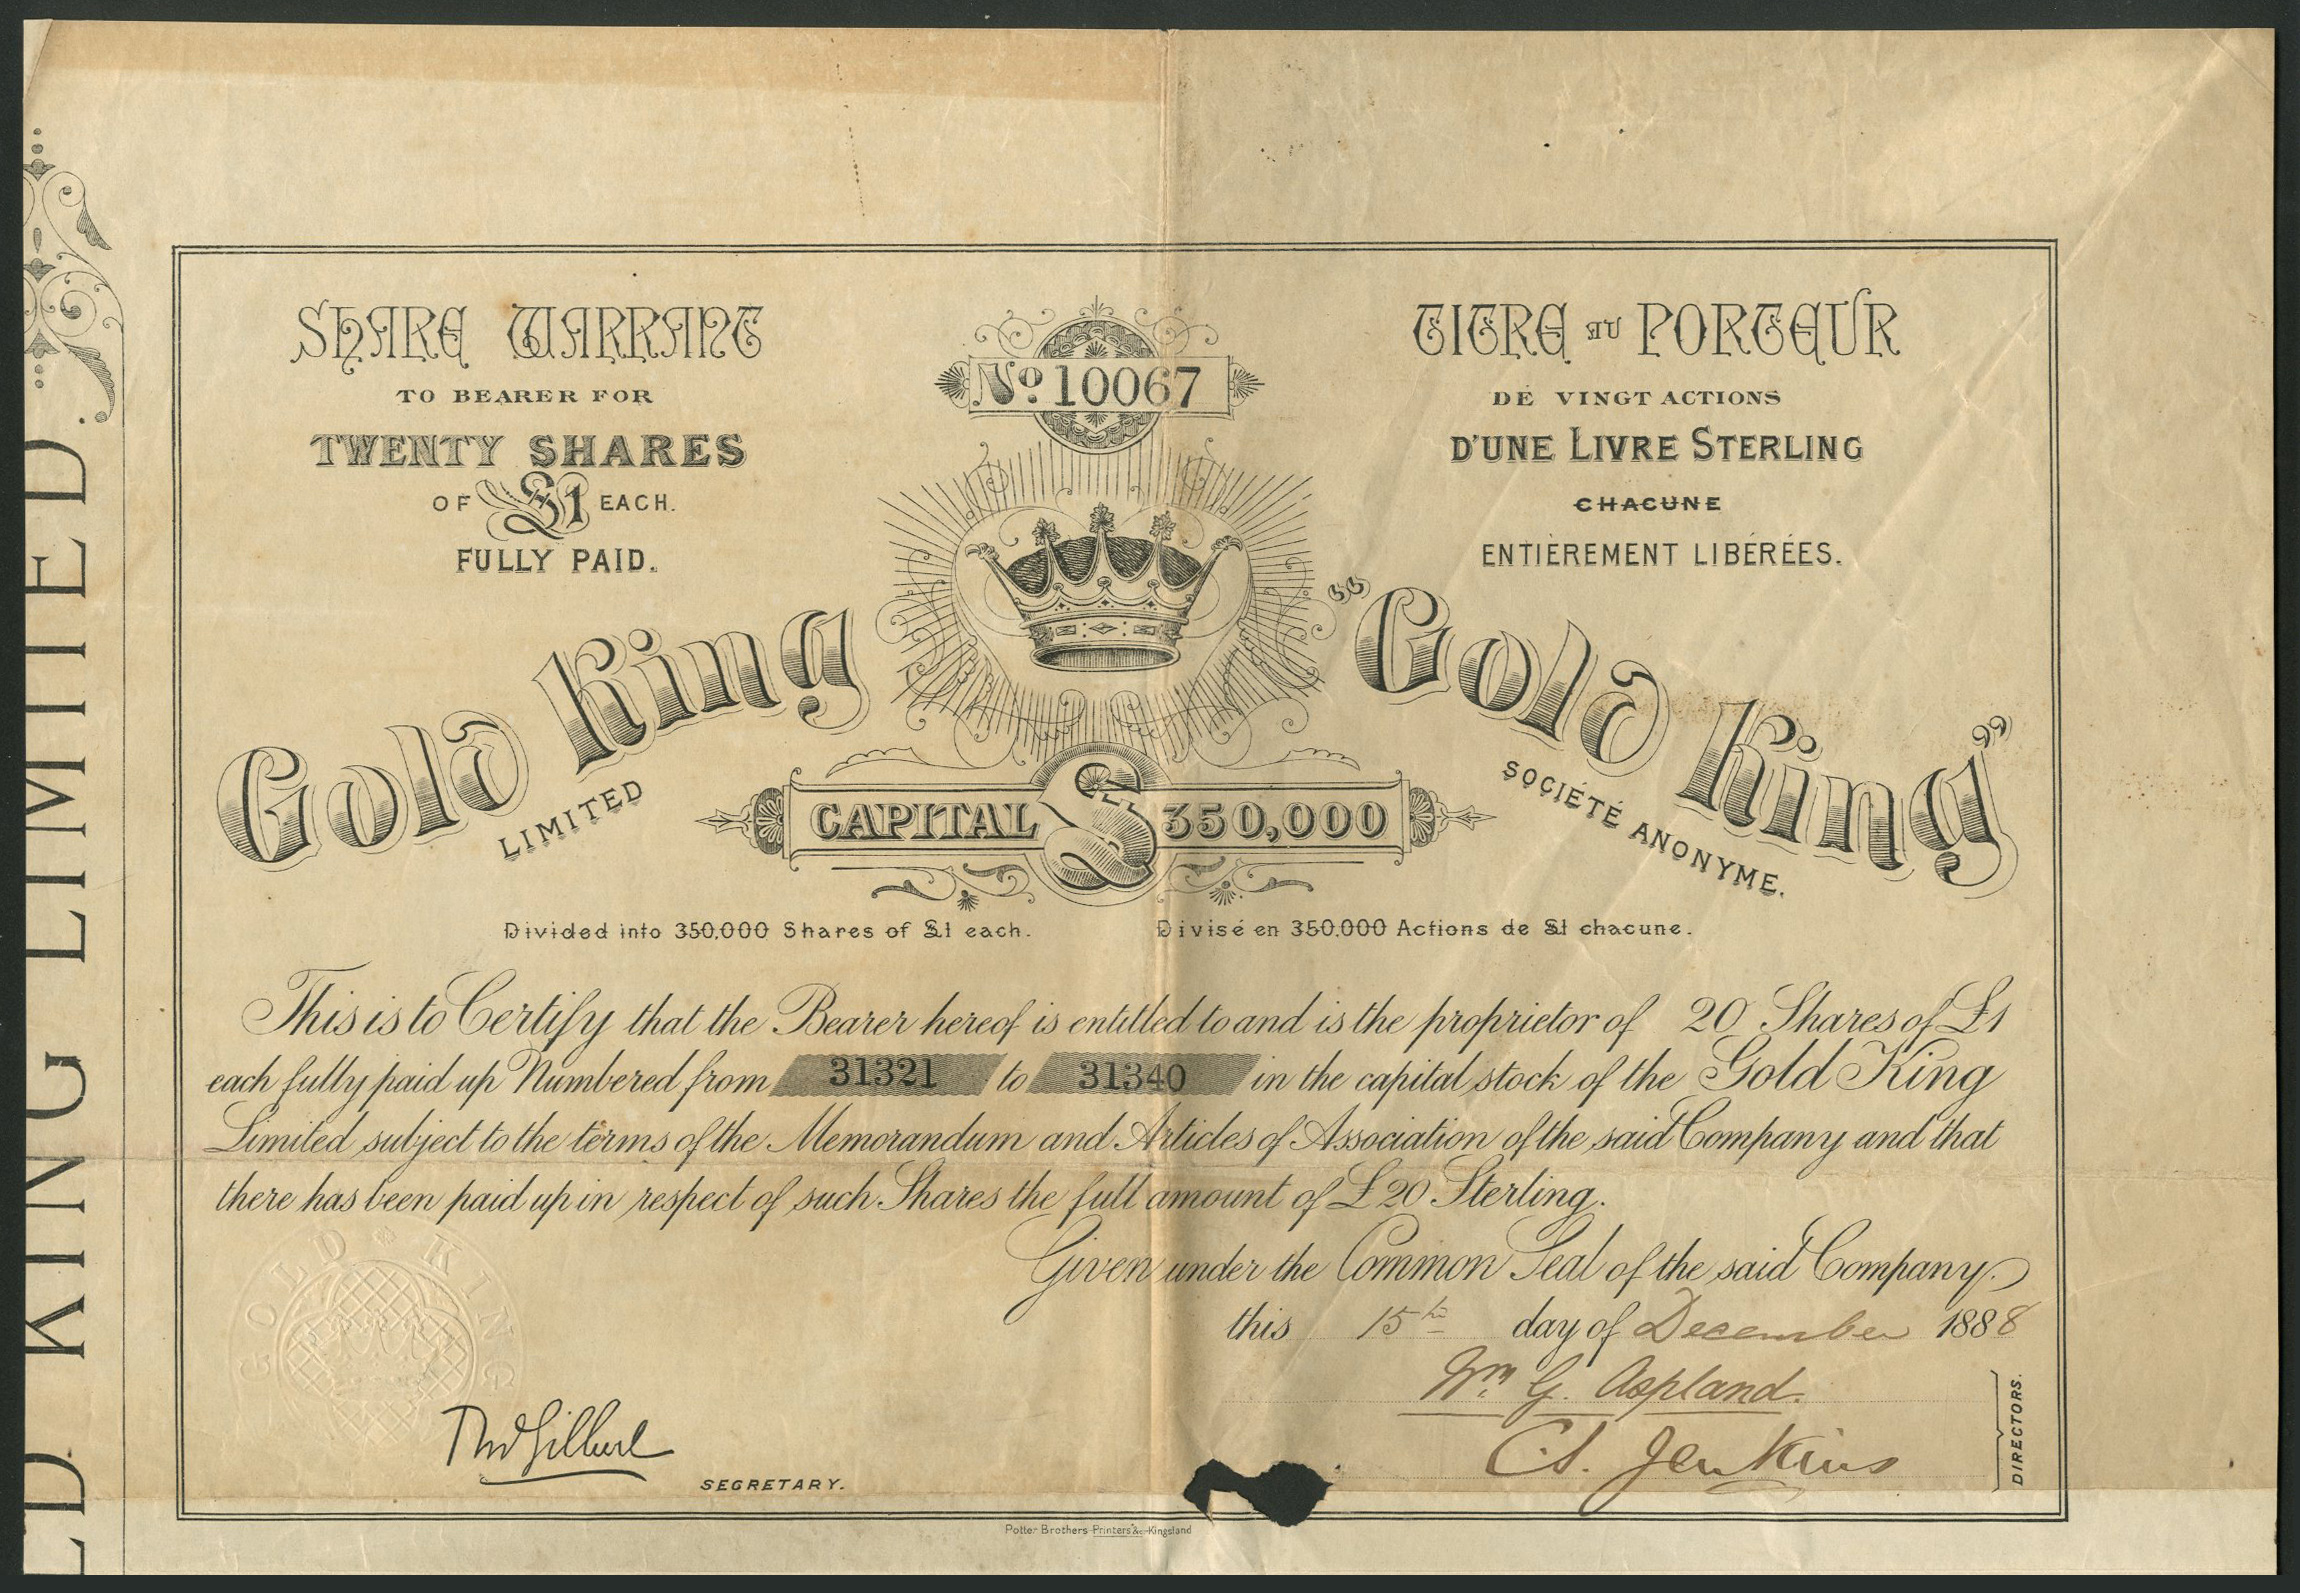 LD KING LIMITED.
SHARE WARRANT
TO BEARER FOR
TWENTY SHARES
OF £1 EACH.
FULLY PAID.
No. 10067
TITRE AU PORTEUR
DE VINGT ACTIONS
D'UNE LIVRE STERLING
CHACUNE
ENTIÈREMENT LIBÉRÉES.
Gold King
LIMITED
"Gold King"
SOCIÉTÉ ANONYME.
CAPITAL £350,000
Divided into 350,000 Shares of £1 each.
Divisé en 350,000 Actions de £1 chacune.
This is to Certify that the Bearer hereof is entitled to and is the proprietor of 20 Shares of £1
each fully paid up Numbered from 31321 to 31340 in the capital stock of the Gold King
Limited subject to the terms of the Memorandum and Articles of Association of the said Company and that
there has been paid up in respect of such Shares the full amount of £20 Sterling.
Given under the Common Seal of the said Company.
this 15th day of December 1888
GOLD KING
Wm. G. Aspland.
C.S. Jenkins
DIRECTORS.
Gilbert
SECRETARY.
Potter Brothers Printers &c. Kingsland